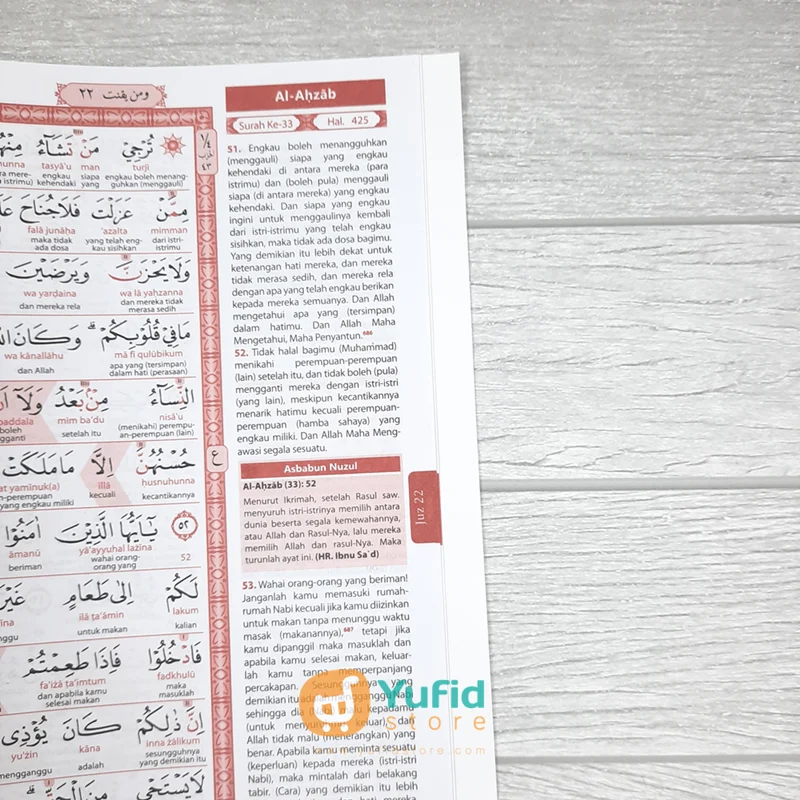 ومن يقنت ٢٢
Al-Aḥzāb
Surah Ke-33
Hal. 425
١/٤
الحزب
٤٣
تُرْجِيْ مَنْ تَشَاۤءُ
turji
man
tasyā'u
engkau boleh menang-
guhkan (menggauli)
siapa
yang
engkau
kehendaki
مِمَّنْ عَزَلْتَ فَلَا جُنَاحَ
mimman
'azalta
falā junāḥa
dari istri-
istrimu
yang telah eng-
kau sisihkan
maka tidak
ada dosa
وَلَا يَحْزَنَّ وَيَرْضَيْنَ
wa lā yaḥzanna
wa yarḍaina
dan mereka tidak
merasa sedih
dan mereka rela
مَا فِيْ قُلُوْبِكُمْ ۗ وَكَانَ
mā fī qulūbikum
wa kānallāhu
apa yang (tersimpan)
dalam hati (perasaan)
dan Allah
النِّسَاۤءُ مِنْۢ بَعْدُ وَلَآ
nisā'u
mim ba'du
(menikahi) perempu-
an-perempuan (lain)
setelah itu
حُسْنُهُنَّ اِلَّا مَا مَلَكَتْ
husnuhunna
illā
kecantikannya
kecuali
ع
٥٢ يٰٓاَيُّهَا الَّذِيْنَ اٰمَنُوْا
yā'ayyuhal lażina
āmanū
52
wahai orang-
orang yang
beriman
لَكُمْ اِلٰى طَعَامٍ غَيْرَ
lakum
ilā ṭa'āmin
kalian
untuk makan
فَادْخُلُوْا فَاِذَا طَعِمْتُمْ
fadkhulū
fa'iżā ṭa'imtum
maka
masuklah
dan apabila kamu
selesai makan
اِنَّ ذٰلِكُمْ كَانَ يُؤْذِى
inna żālikum
kāna
yu'żin
sesungguhnya
yang demikian itu
adalah
mengganggu
لَا يَسْتَحْيٖ مِنَ
51. Engkau boleh menangguhkan
(menggauli) siapa yang engkau
kehendaki di antara mereka (para
istrimu) dan (boleh pula) menggauli
siapa (di antara mereka) yang engkau
kehendaki. Dan siapa yang engkau
ingini untuk menggaulinya kembali
dari istri-istrimu yang telah engkau
sisihkan, maka tidak ada dosa bagimu.
Yang demikian itu lebih dekat untuk
ketenangan hati mereka, dan mereka
tidak merasa sedih, dan mereka rela
dengan apa yang telah engkau berikan
kepada mereka semuanya. Dan Allah
mengetahui apa yang (tersimpan)
dalam hatimu. Dan Allah Maha
Mengetahui, Maha Penyantun.686
52. Tidak halal bagimu (Muhammad)
menikahi perempuan-perempuan
(lain) setelah itu, dan tidak boleh (pula)
mengganti mereka dengan istri-istri
(yang lain), meskipun kecantikannya
menarik hatimu kecuali perempuan-
perempuan (hamba sahaya) yang
engkau miliki. Dan Allah Maha Meng-
awasi segala sesuatu.
Asbabun Nuzul
Al-Aḥzāb (33): 52
Menurut Ikrimah, setelah Rasul saw.
menyuruh istri-istrinya memilih antara
dunia beserta segala kemewahannya,
atau Allah dan Rasul-Nya, lalu mereka
memilih Allah dan rasul-Nya. Maka
turunlah ayat ini. (HR. Ibnu Sa'd)
Juz 22
53. Wahai orang-orang yang beriman!
Janganlah kamu memasuki rumah-
rumah Nabi kecuali jika kamu diizinkan
untuk makan tanpa menunggu waktu
masak (makanannya),687 tetapi jika
kamu dipanggil maka masuklah dan
apabila kamu selesai makan, keluar-
lah kamu tanpa memperpanjang
percakapan.
demikian itu
sehingga dia kepadamu
(untuk keluar), dan
Allah tidak malu (menerangkan) yang
benar. Apabila kamu meminta sesuatu
(keperluan) kepada mereka (istri-istri
Nabi), maka mintalah dari belakang
tabir. (Cara) yang demikian itu lebih
Yufid
store